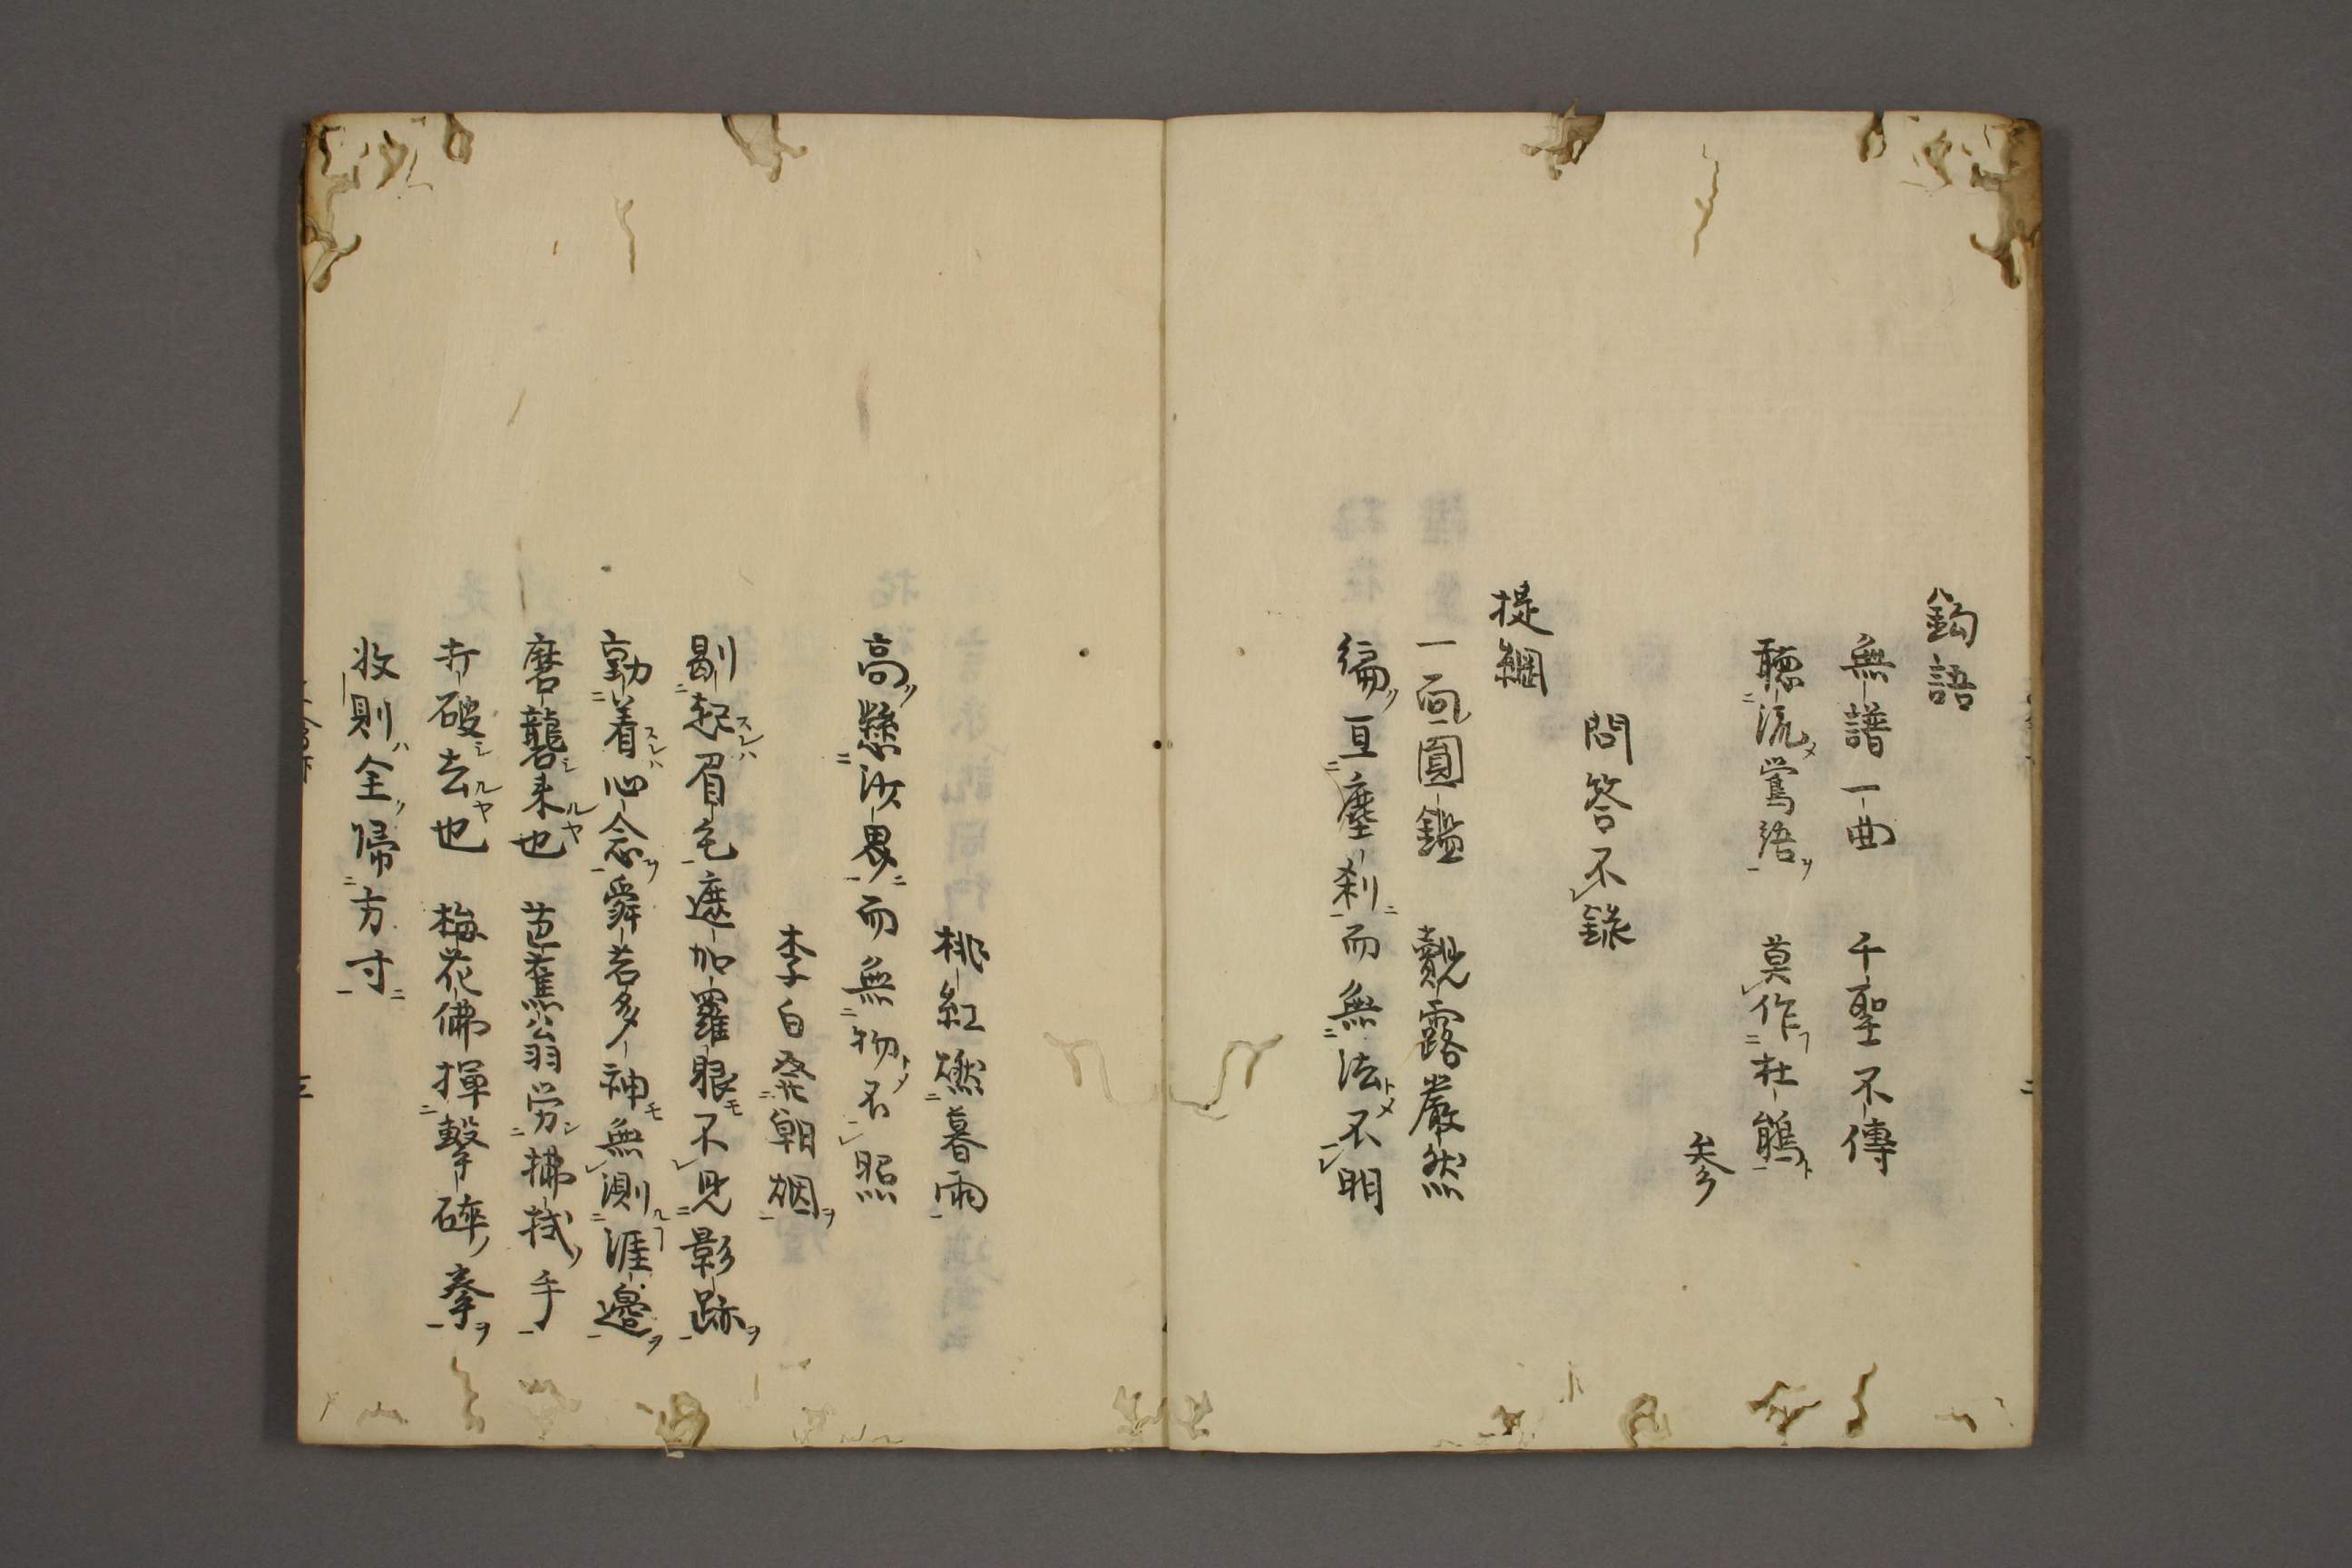 鈎語
無譜一曲　千聖不傳
聴流鶯語　莫作杜鵑
参
問答不錄
提綱
一面圓鑑　覿露嚴然
徧亘塵刹而無法不明
桃紅燃暮雨
高懸沙界而無物不照
李白發朝烟
剔起眉毛遮加羅眼不見影跡
勤着心念舜若多神無測涯邊
磨礱来也　芭蕉翁労拂拭手
打破去也　梅花佛揮擊碎拳
收則全帰方寸